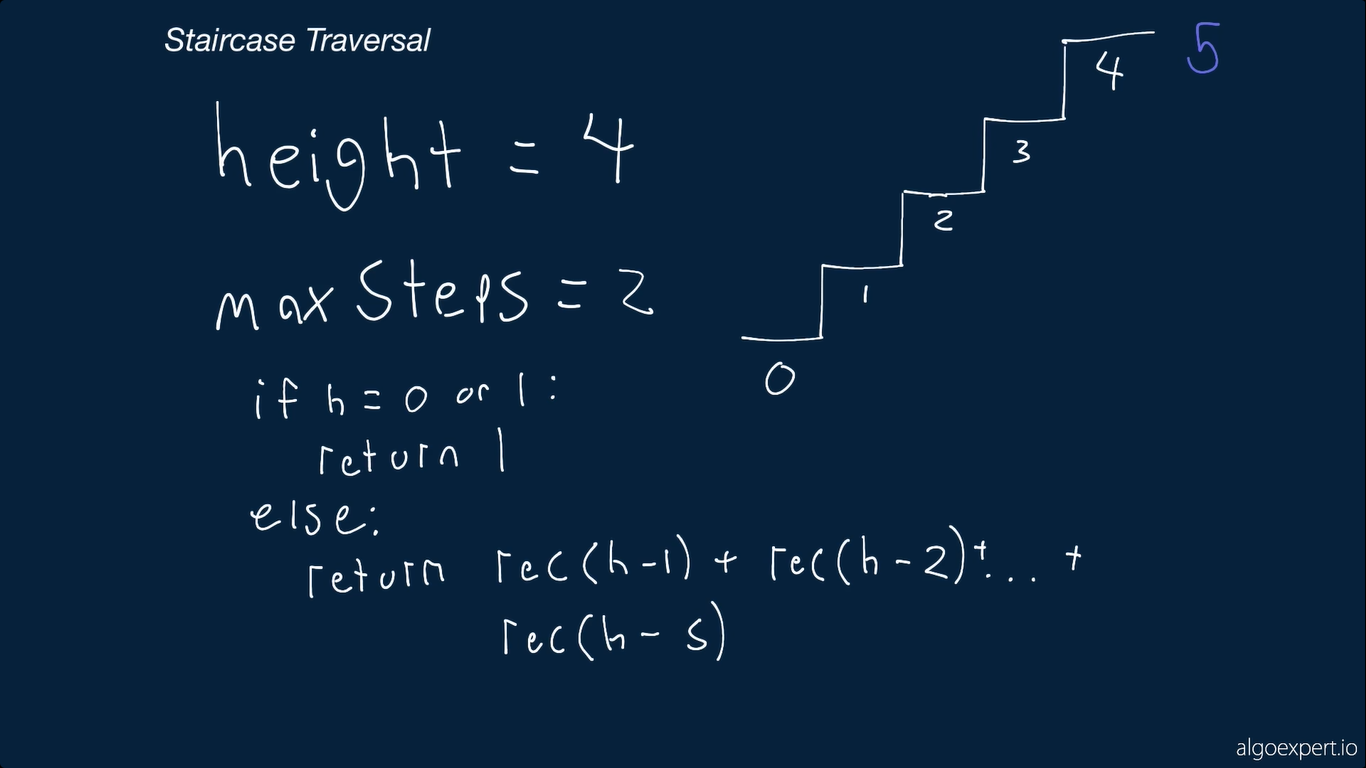 Staircase Traversal
height = 4
max Steps = 2
if h = 0 or 1:
return 1
else:
return rec(h-1) + rec(h-2)+... +
rec(h-s)
5
4
3
2
1
0
algoexpert.io